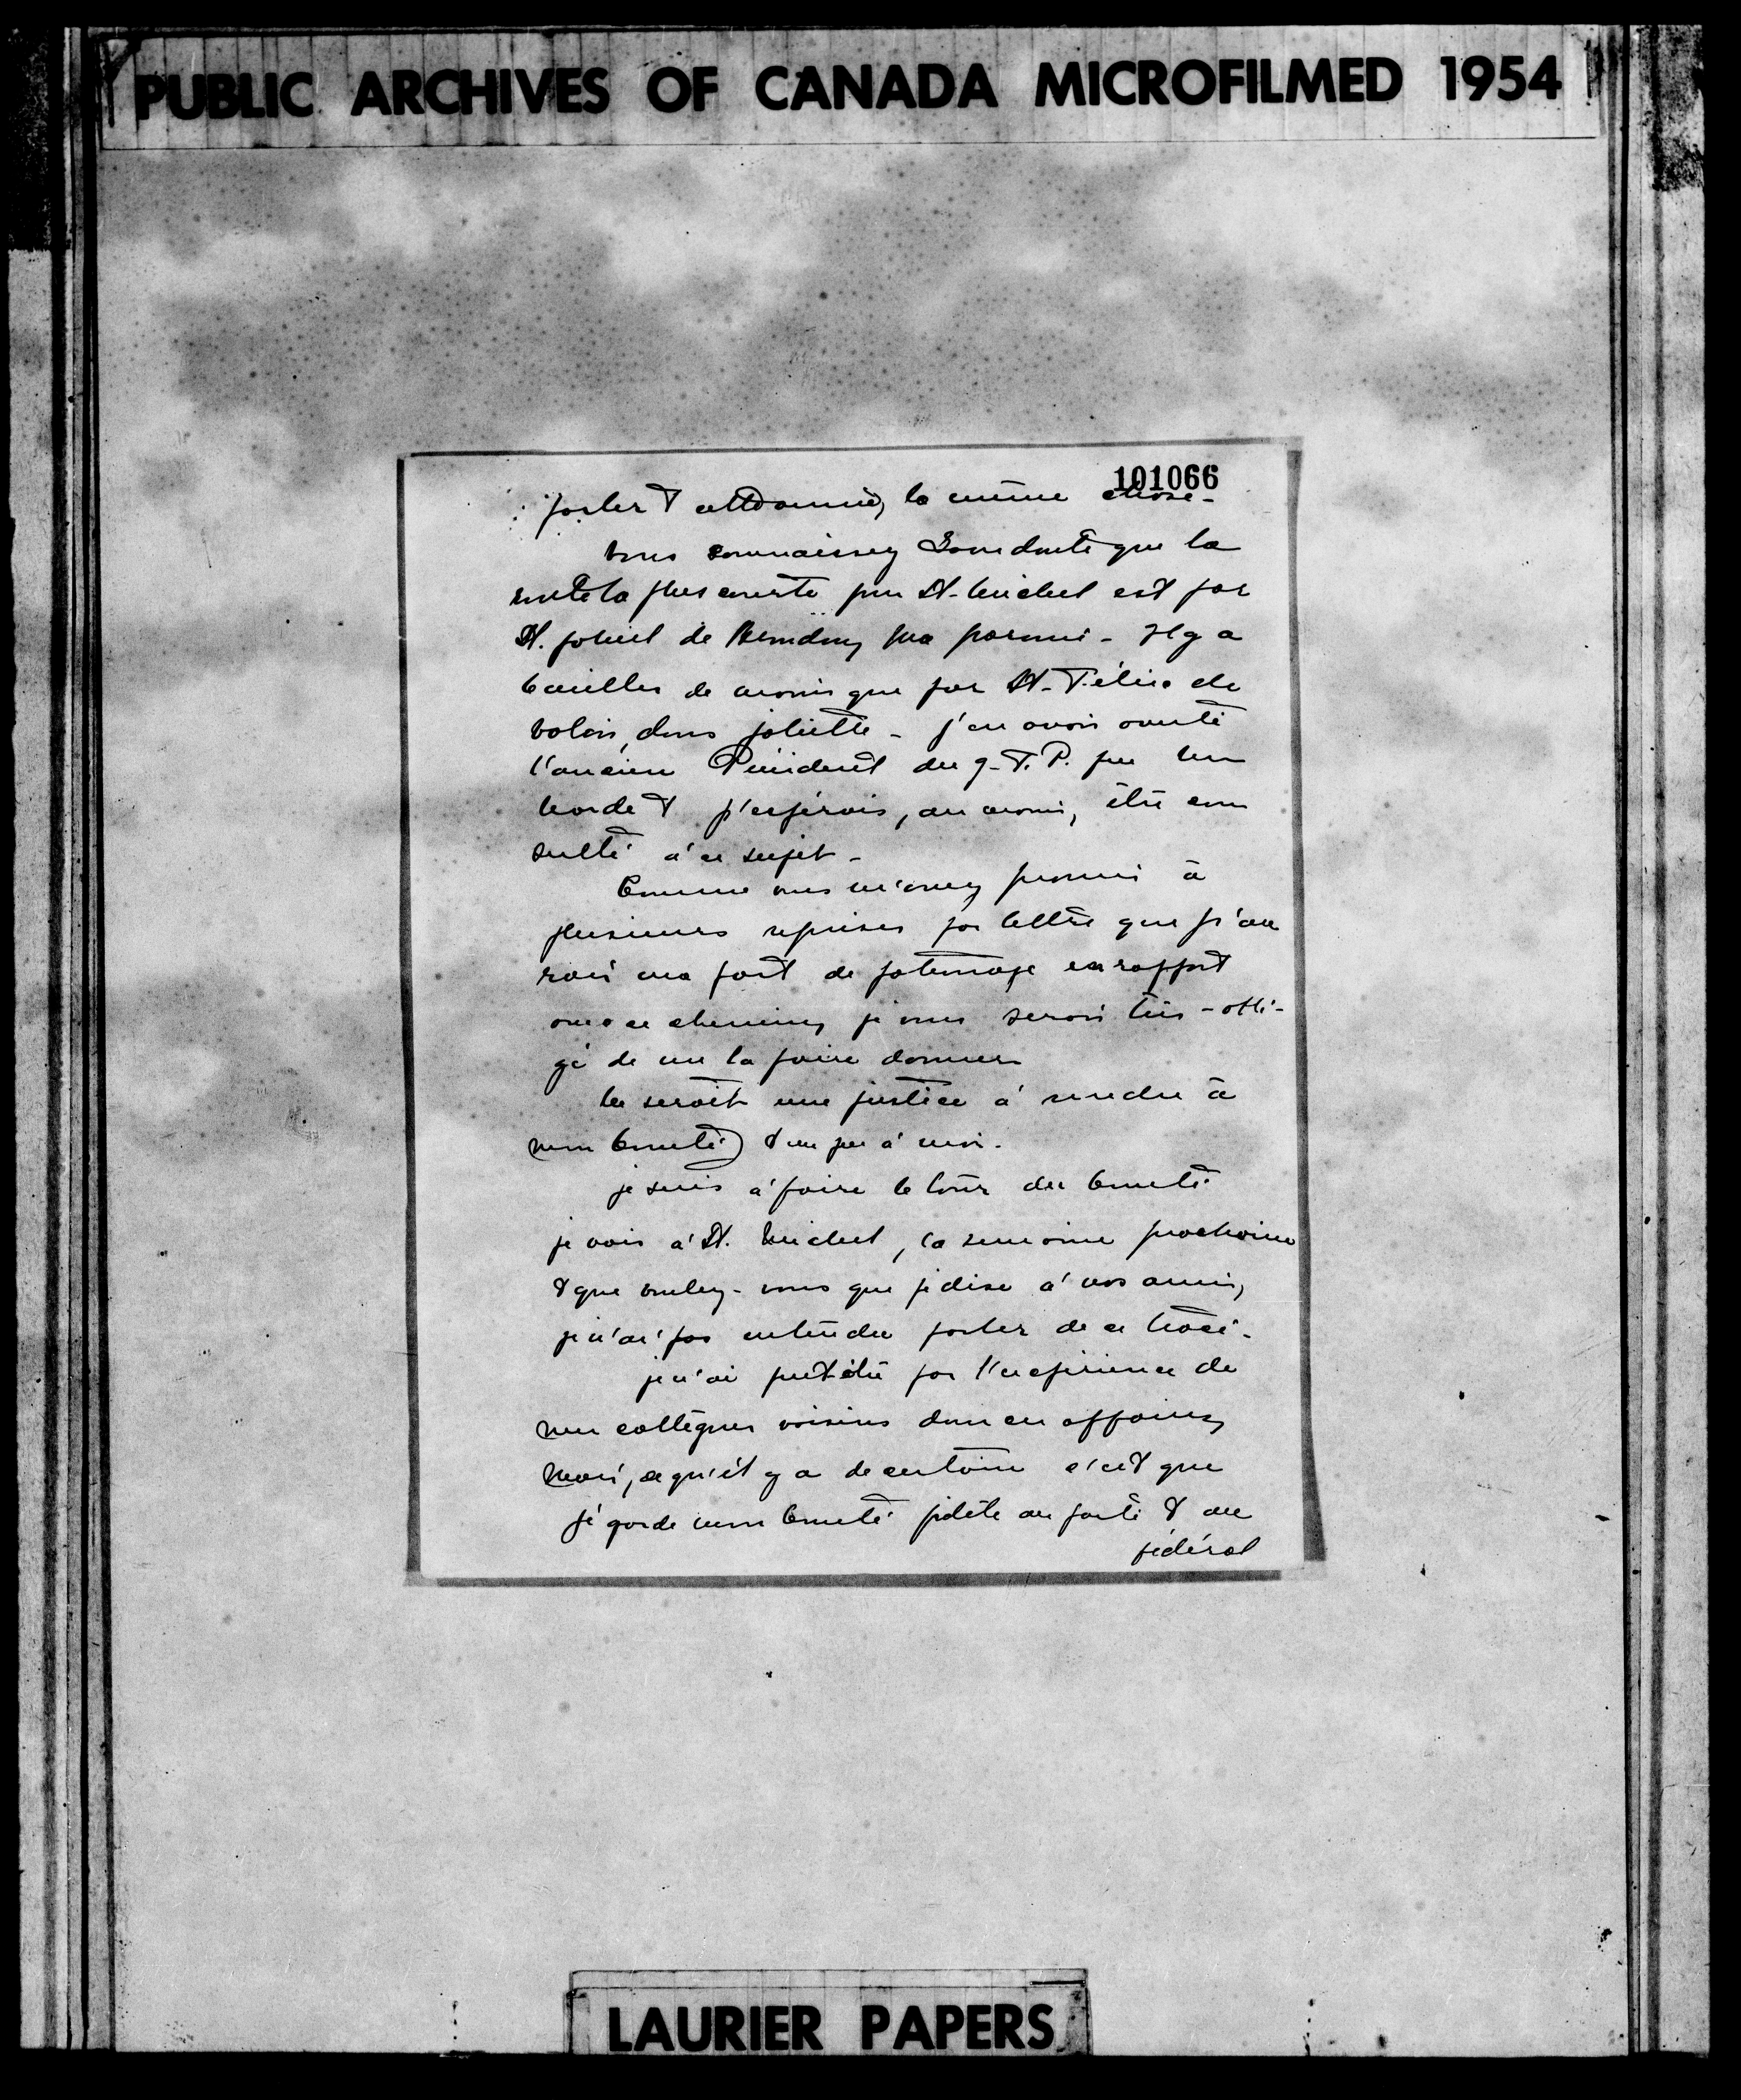 PUBLIC ARCHIVES OF CANADA MICROFILMED 1954
101066
parler & la même chose -
vous connaissez sans doute que la
route la plus courte pour St-Michel est par
St. Gabriel de Brandon, ma paroisse - Il y a
6 milles de moins que par St-Félix de
Valois, dans Joliette - j'en avais
l'ancien Président du G.T.P. par un
& j'espérais, au moins, être con
sulté à ce sujet -
Comme vous m'avez promis à
plusieurs reprises par lettre que j'au
rais ma part de patronage en rapport
avec ce chemin, je vous serais très-obli-
gé de me la faire donner
Ce serait une justice à rendre à
mon Comté & un peu à moi.
je suis à faire le tour du Comté
je vais à St. Michel, la semaine prochaine
& que voulez-vous que je dise à vos amis,
je n'ai pas entendu parler de ce tracé.
je n'ai peut-être pas l'expérience de
mes collègues voisins dans ces affaires,
Mais, ce qu'il y a de certain c'est que
je garde mon Comté fidèle au parti & au
fédéral
LAURIER PAPERS